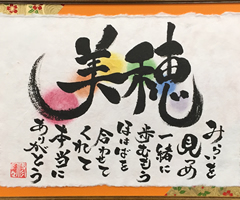 美穂
みらいを
見つめ
一緒に
ほはばを
合わせて
くれて
本当に
ありがとう